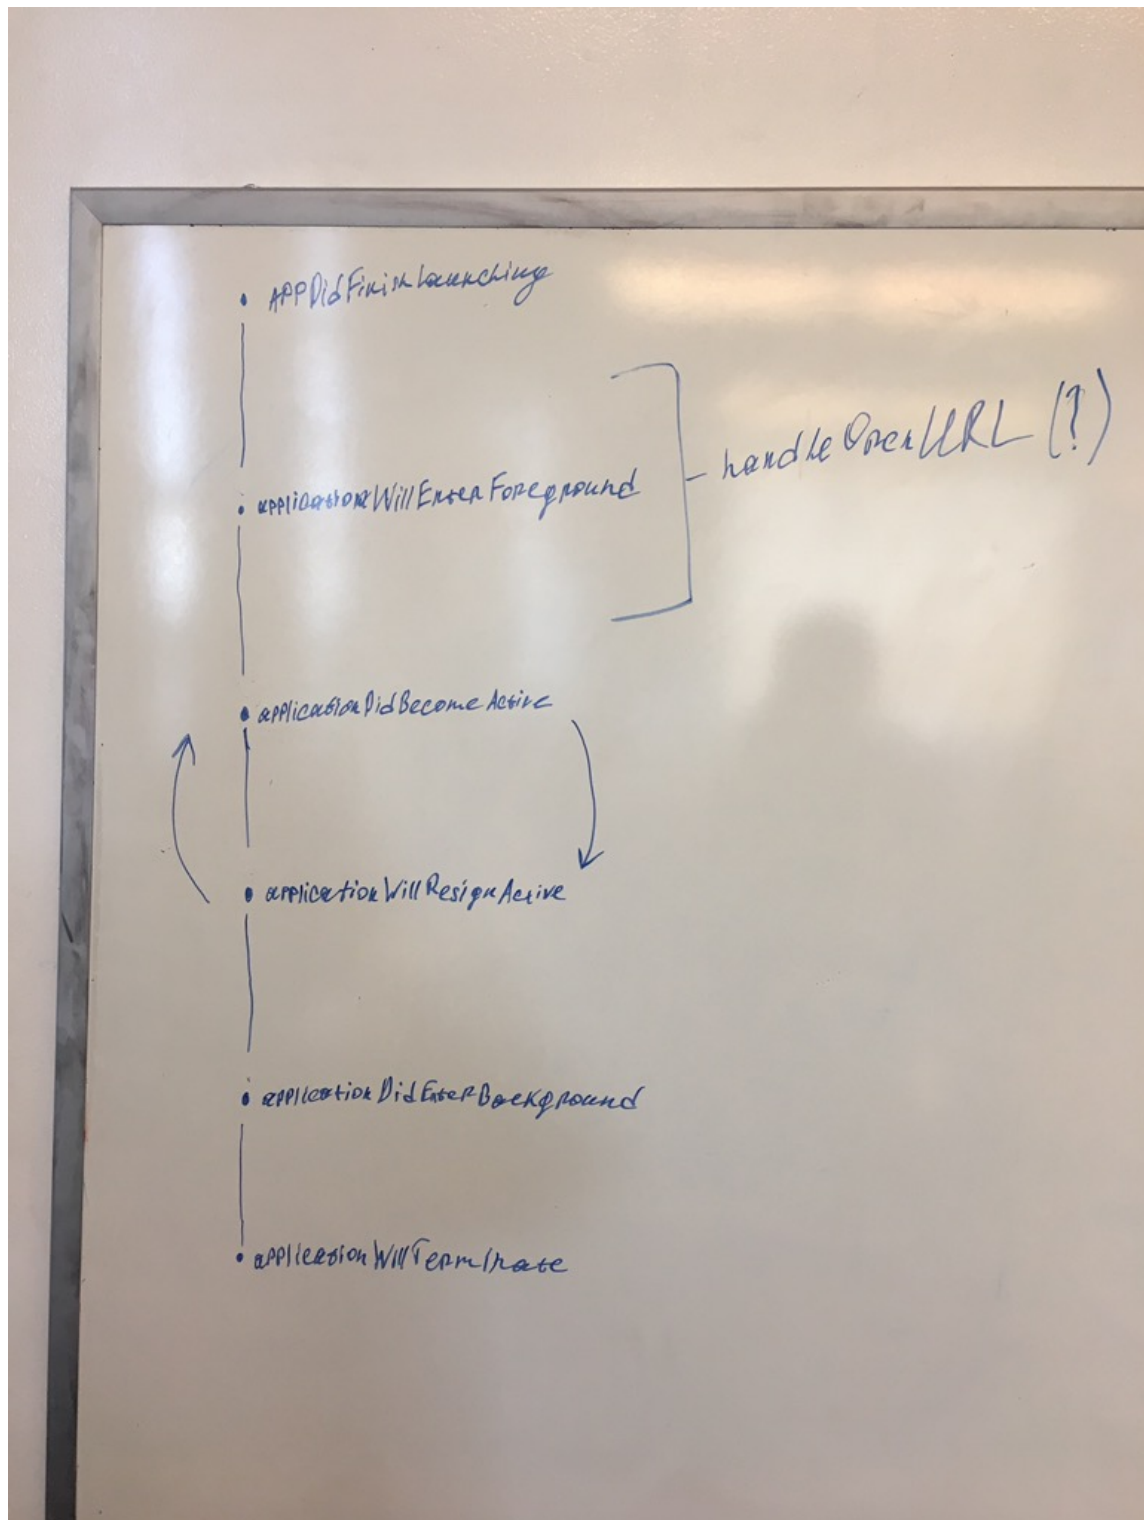 APPDidFinishLaunching
applicationWillEnterForeground
handleOpenURL (?)
applicationDidBecomeActive
applicationWillResignActive
applicationDidEnterBackground
applicationWillTerminate